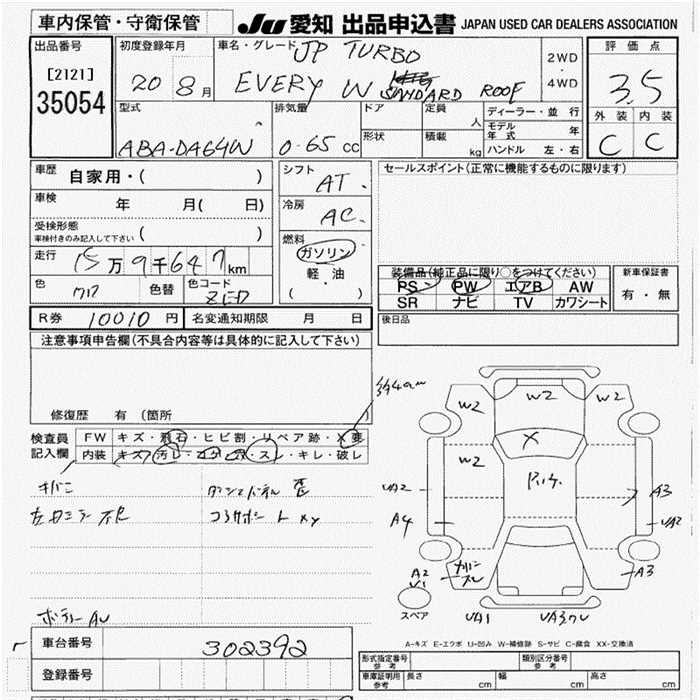 車内保管・守衛保管 JU 愛知 出品申込書 JAPAN USED CAR DEALERS ASSOCIATION
出品番号
[2121]
35054
初度登録年月
20 8月
車名・グレード JP TURBO
EVERY W ROOF
2WD
・
4WD
評価点
3.5
外装 内装
C C
型式
ABA-DA64W
排気量
0.65 cc
ドア
形状
定員
人
積載
kg
ディーラー・並行
モデル年式 年
ハンドル 左・右
車歴
自家用・( )
車検
年 月( 日)
受検形態
車検付きのみ記入して下さい ( )
走行
15万9千647km
色 色替 色コード
ZED
シフト
AT
冷房
AC
燃料
ガソリン
・
軽油
( )
セールスポイント(正常に機能するものに限ります)
装備品(純正品に限り○をつけてください)
PS PW エアB AW
SR ナビ TV カワシート
新車保証書
有・無
R券 10010円 名変通知期限 月 日
後日品
注意事項申告欄(不具合内容等は具体的に記入して下さい)
修復歴 有 (箇所
検査員
記入欄
FW キズ・飛石・ヒビ割・リペア跡・X要
内装 キズ・汚レ・コゲ・穴・スレ・キレ・破レ
W2 W2 W2
X
W2
UA2 A3
A4 UA2
A2 A3
U1
スペア UA1
A-キズ E-エクボ U-凹み W-補修跡 S-サビ C-腐食 XX-交換済
車台番号 302392
登録番号
形式指定番号
参考
類別区分番号
参考
車庫証明用
参考
長さ cm 幅 cm 高さ cm